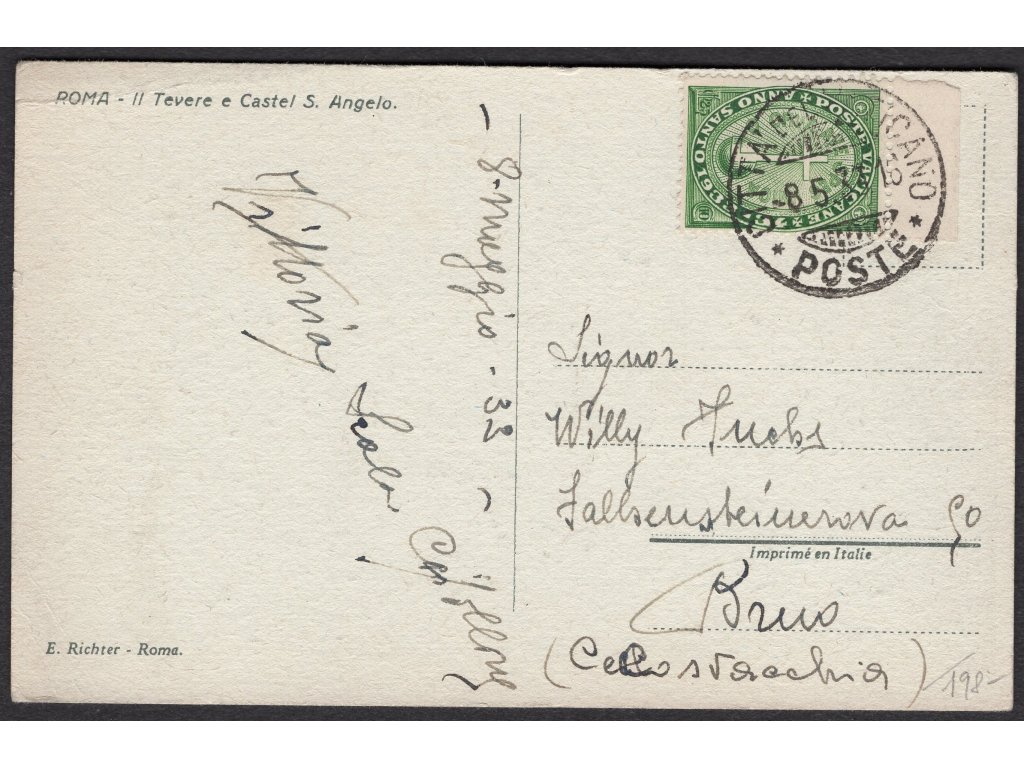 ROMA - Il Tevere e Castel S. Angelo.
- 8-Maggio - 33 -
Vittoria
Scala
POSTE VATICANE
ANNO SANTO
CITTÀ DEL VATICANO
-8.5.3
18
* POSTE *
Signor
Willy Fuchs
Falkensteinerova 50
Imprimé en Italie
Brno
(Cecoslovacchia)
198-
E. Richter - Roma.